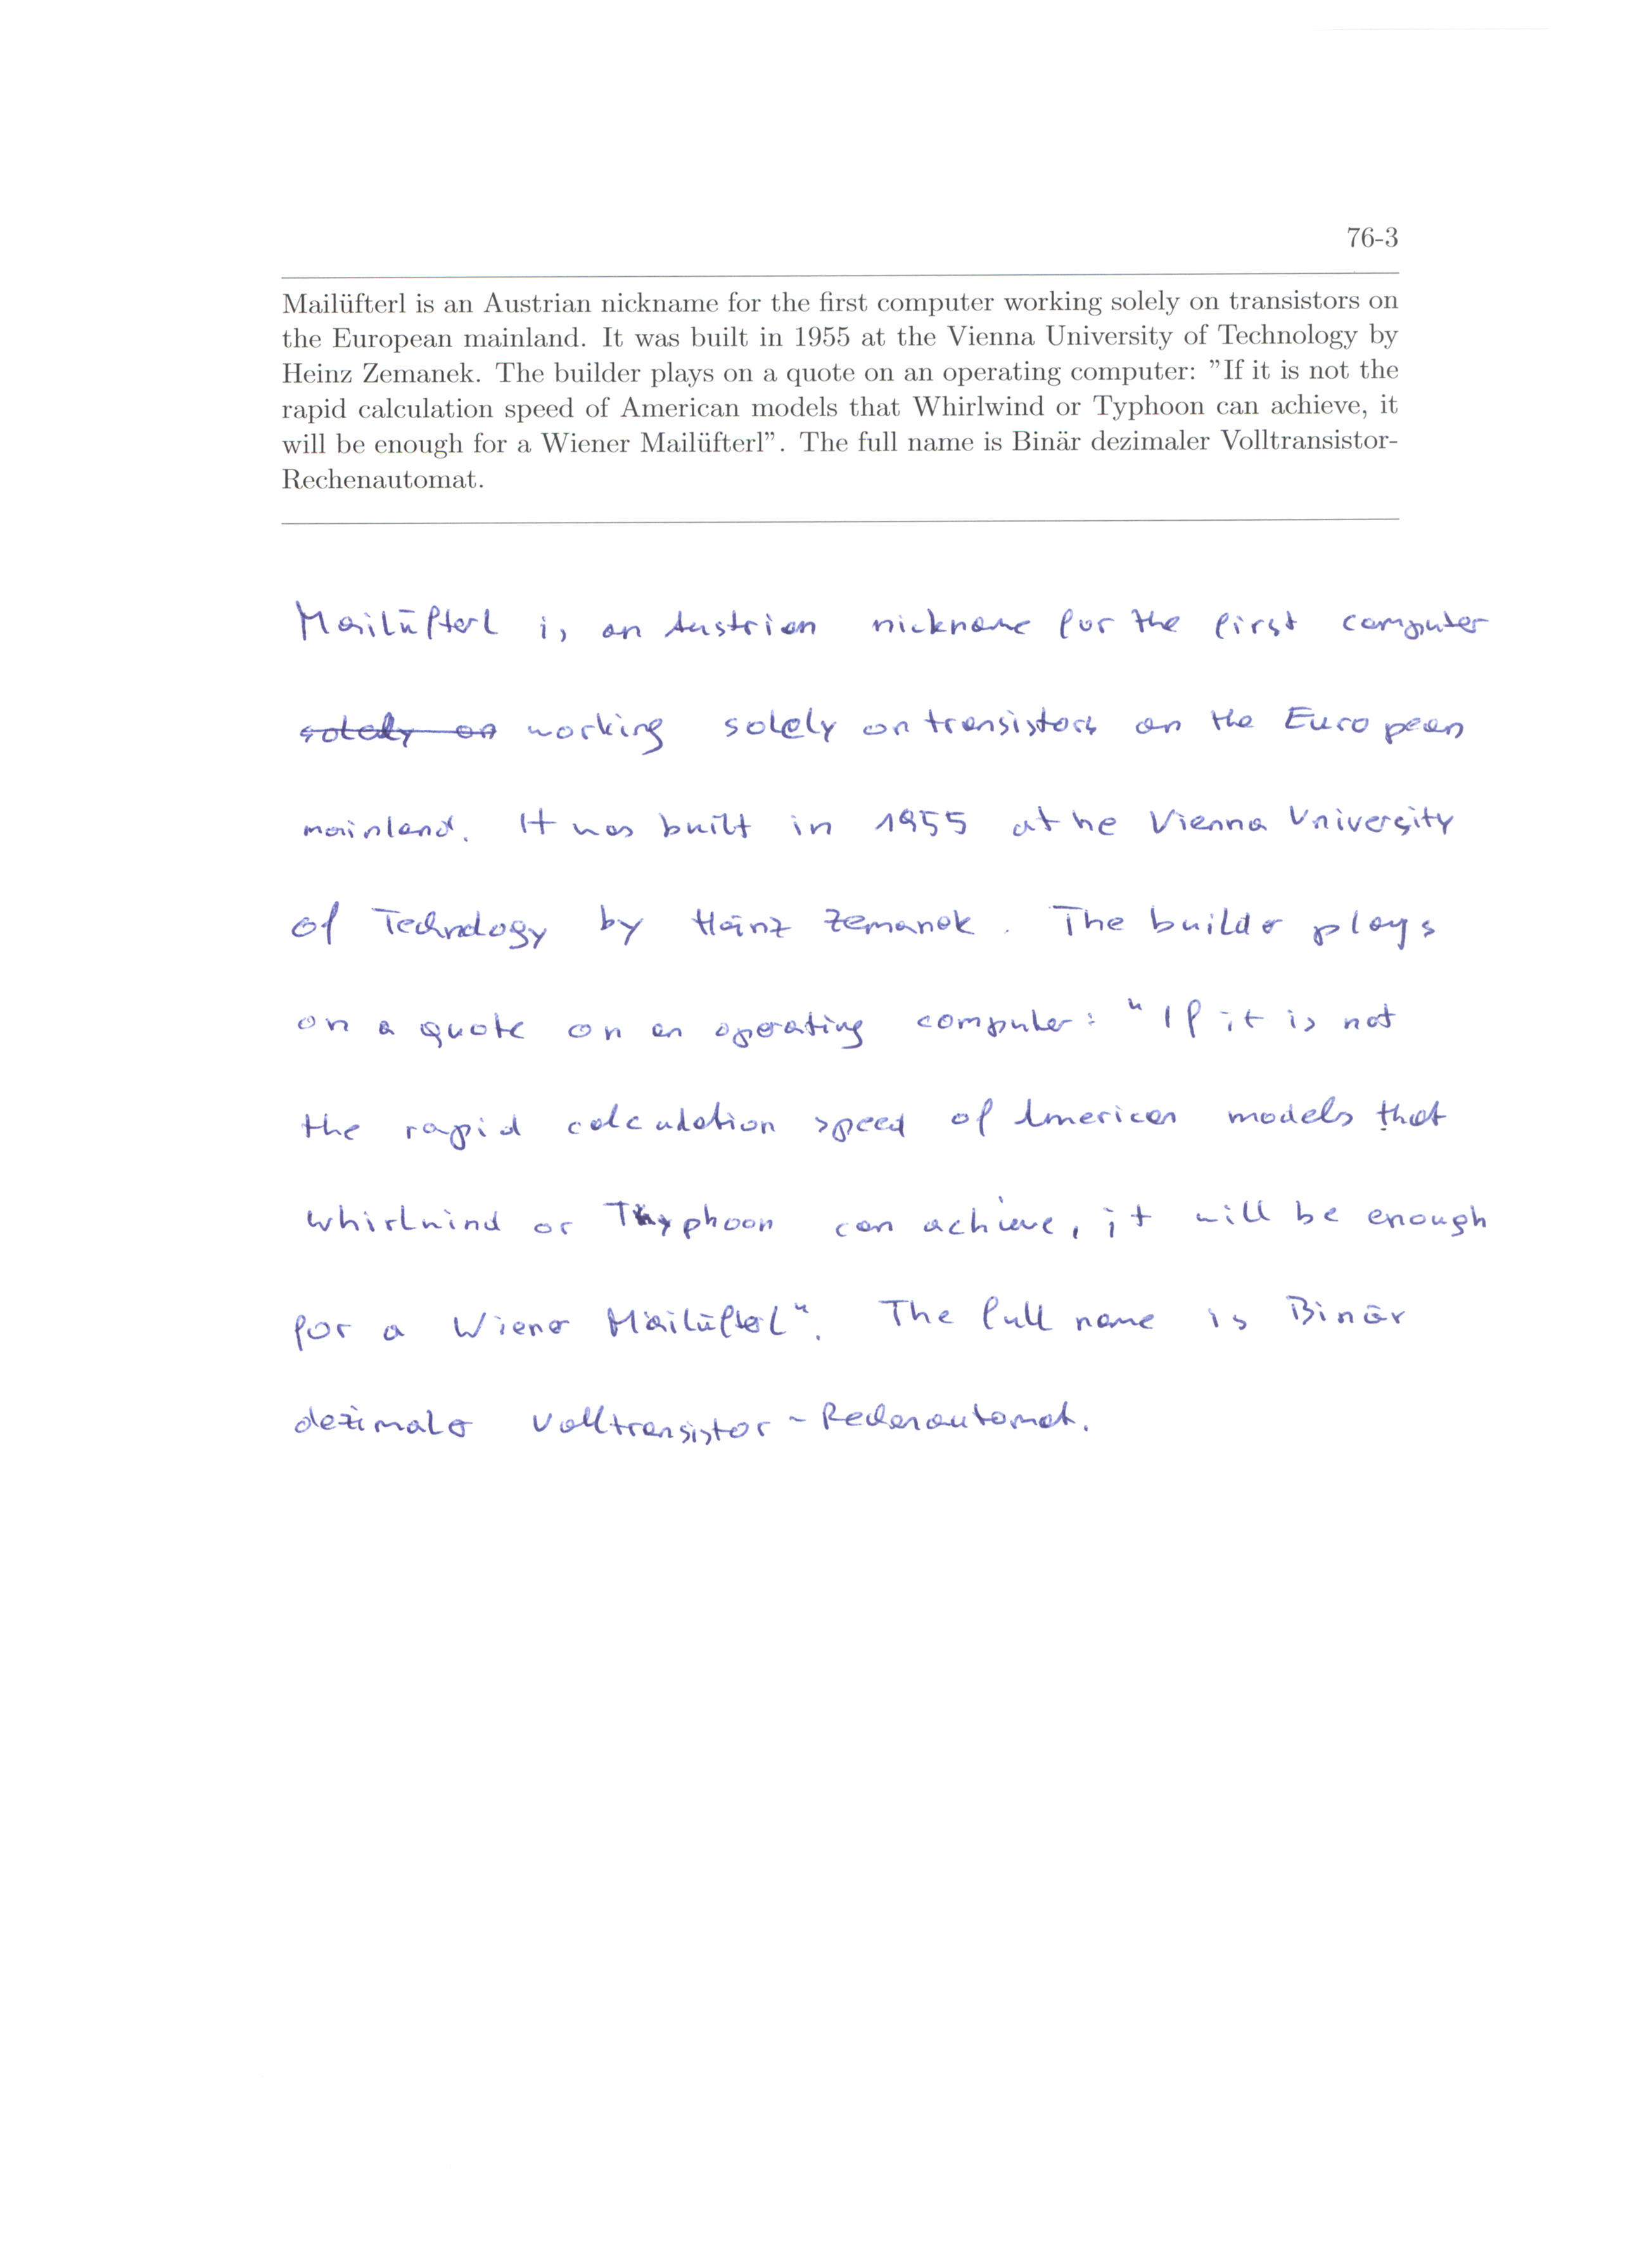 76-3
Mailüfterl is an Austrian nickname for the first computer working solely on transistors on
the European mainland. It was built in 1955 at the Vienna University of Technology by
Heinz Zemanek. The builder plays on a quote on an operating computer: ”If it is not the
rapid calculation speed of American models that Whirlwind or Typhoon can achieve, it
will be enough for a Wiener Mailüfterl”. The full name is Binär dezimaler Volltransistor-
Rechenautomat.
Mailüfterl is an Austrian nickname for the first computer
solely on working solely on transistors on the European
mainland. It was built in 1955 at he Vienna University
of Technology by Heinz Zemanek. The builder plays
on a quote on an operating computer: "If it is not
the rapid calculation speed of American models that
Whirlwind or Typhoon can achieve, it will be enough
for a Wiener Mailüfterl". The full name is Binär
dezimaler Volltransistor-Rechenautomat.